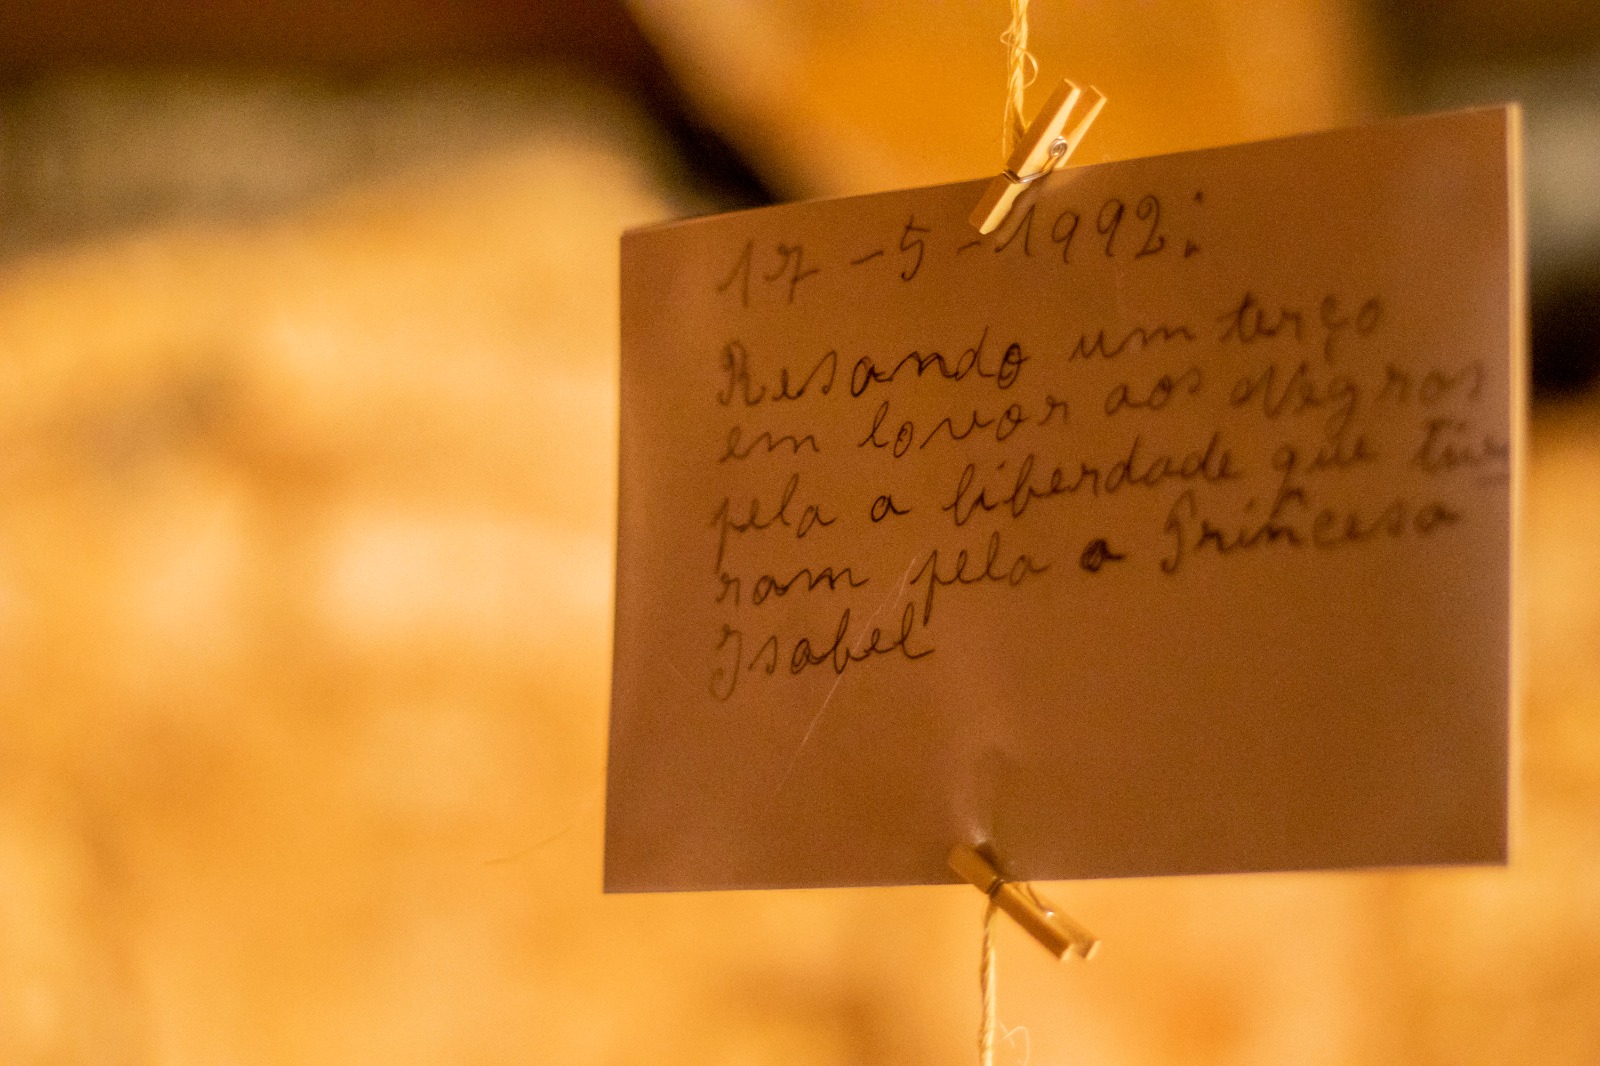 17-5-1992:
Resando um terço
em lovor aos Negros
pela a liberdade que tive
ram pela a Princesa
Isabel